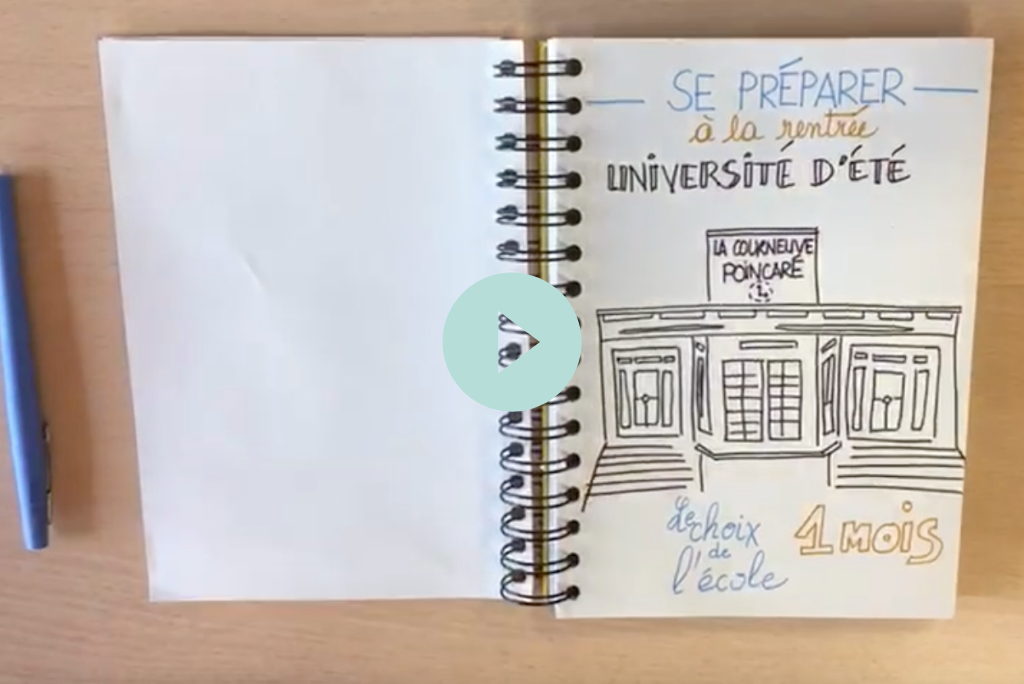 SE PRÉPARER
à la rentrée
UNIVERSITÉ D'ÉTÉ
LA COURNEUVE
POINCARÉ
Le choix
de
l'école
1 MOIS